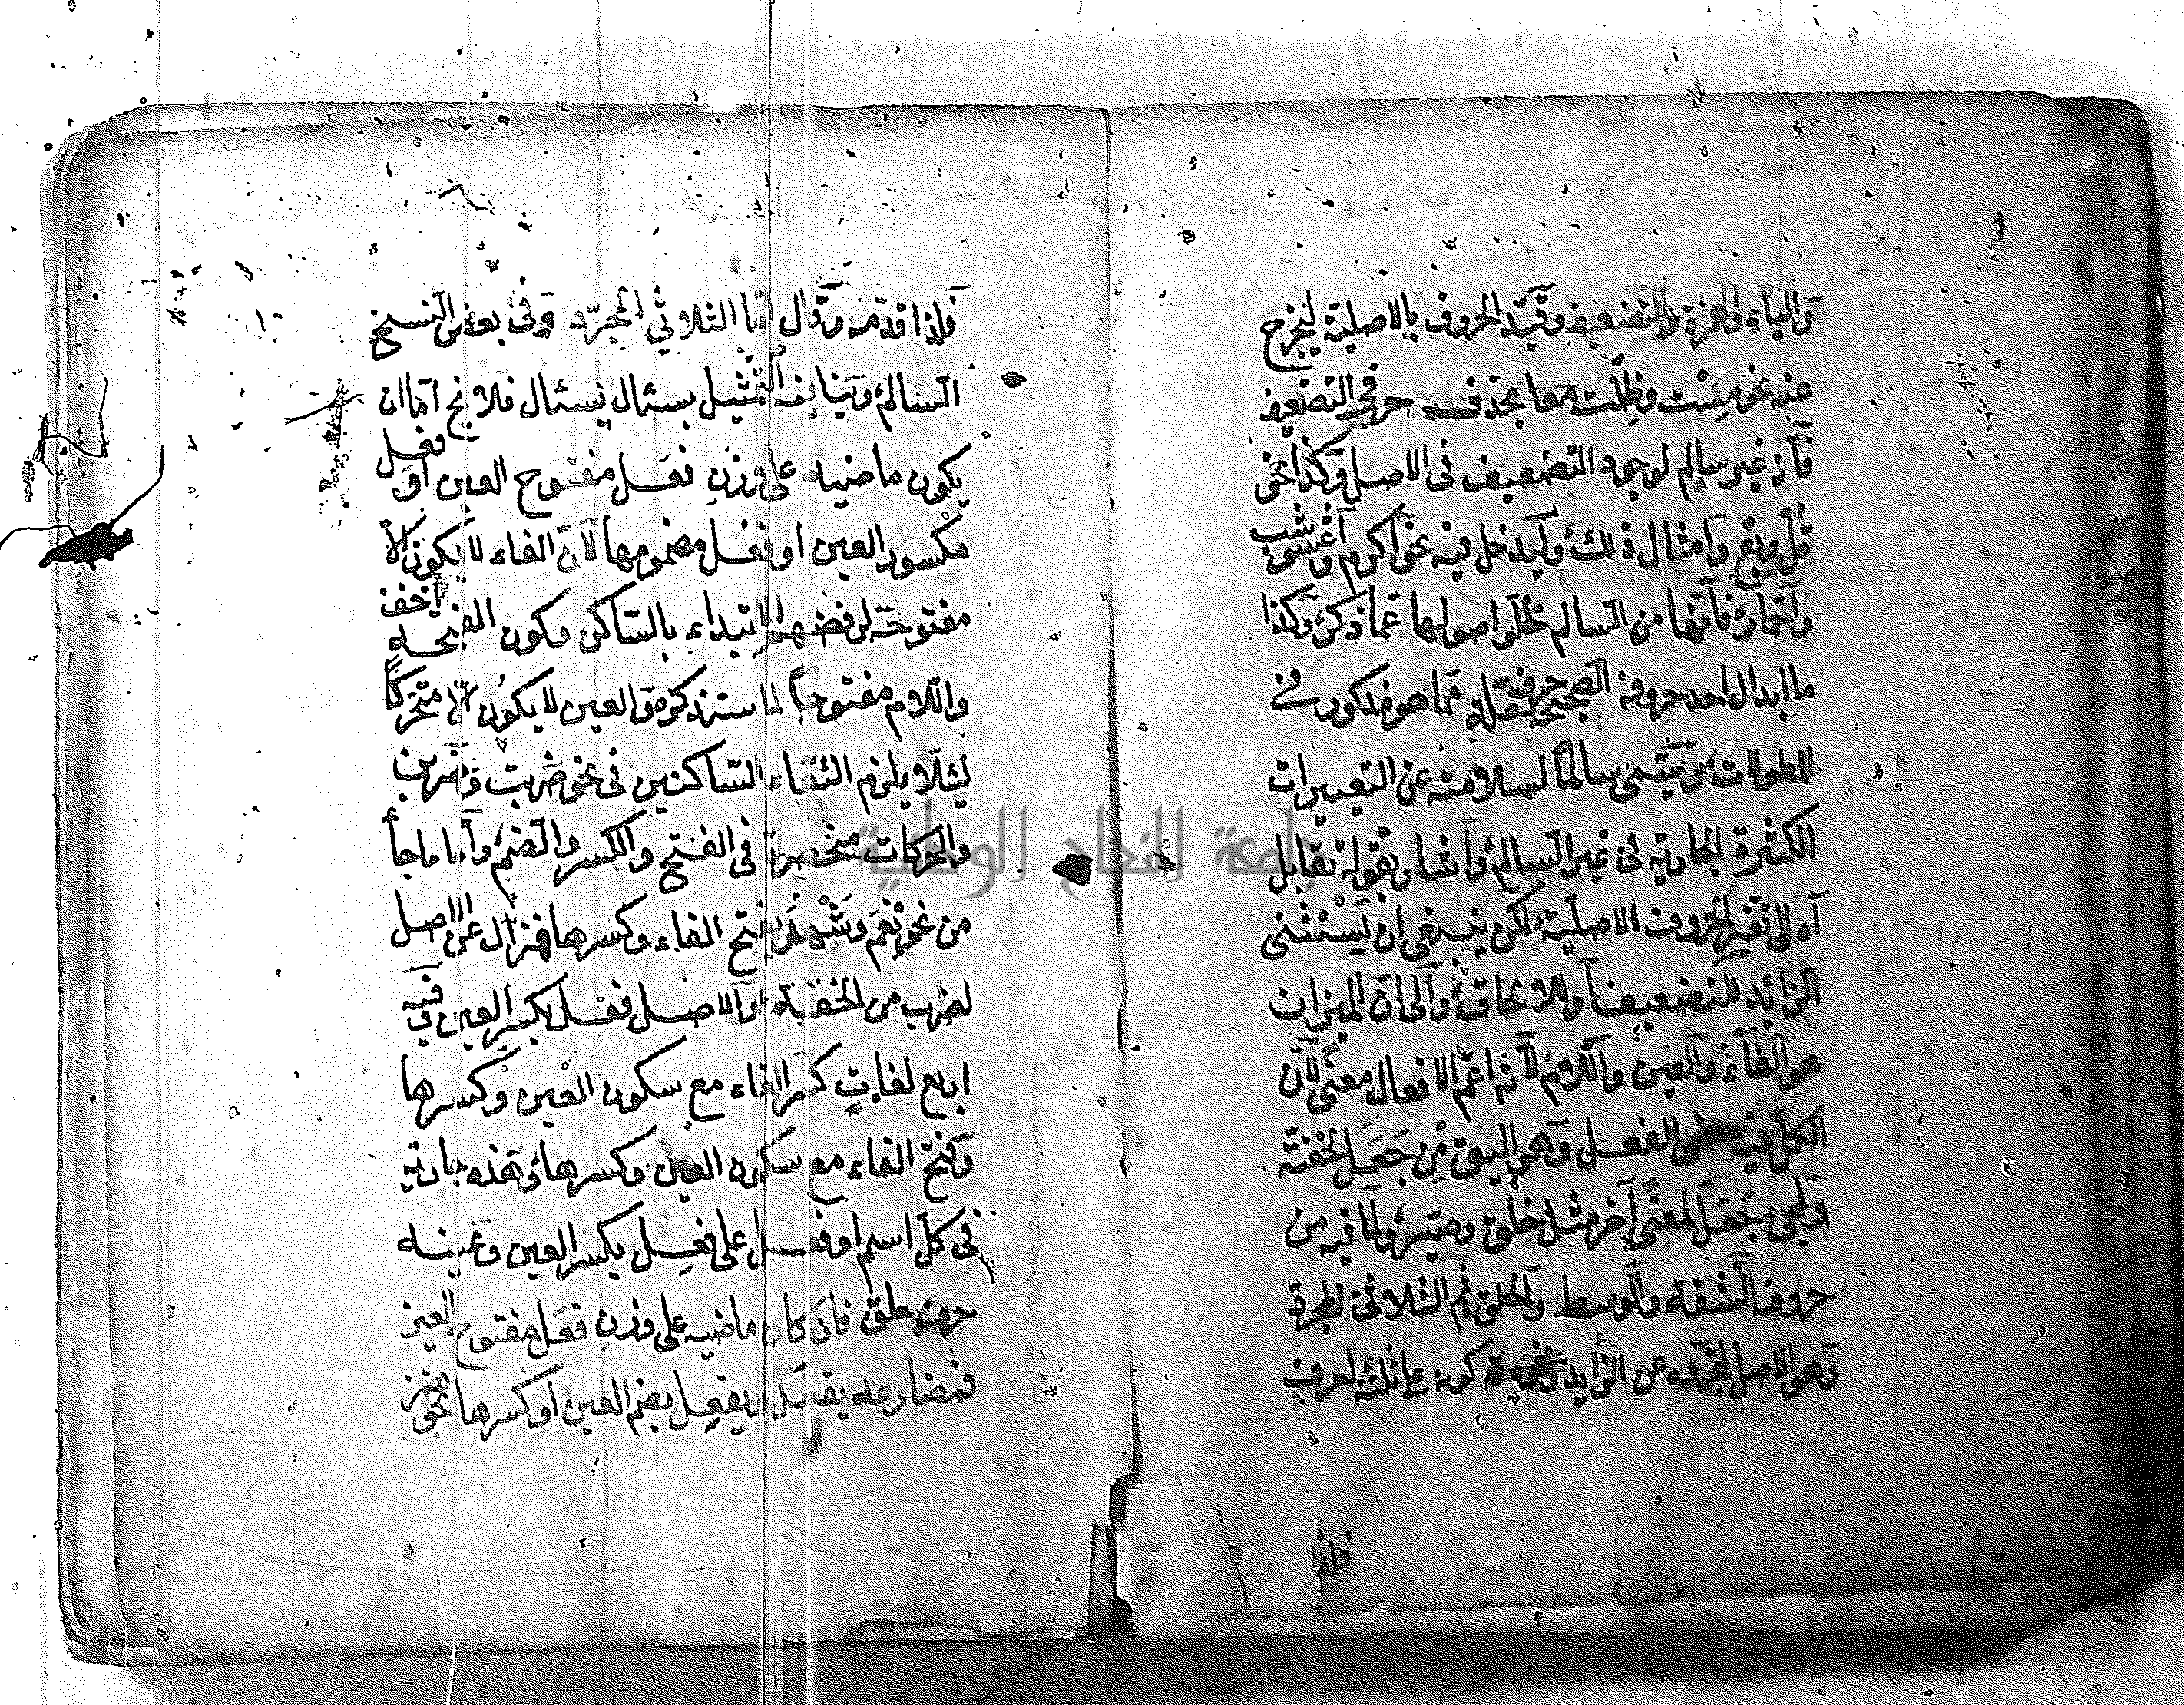 والياء والهمزة والتضعيف وقيد الحروف بالاصلية ليخرج
عنه نحو مست وظلت بحذف حرفى التضعيف
فانه غير سالم لوجود التضعيف فى الاصل وكذا نحو
قل وبع وامثال ذلك وليدخل فيه نحو اكرم واعشوشب
واحمار فانها من السالم لخلو اصولها عما ذكر وكذا
ما ابدل احد حروفه الصحيح حرف علة مما هو مذكور فى
المطولات ويسمى سالما لسلامته عن التغييرات
الكثيرة الجارية فى غير السالم واشار بقوله تقابل
اه الى تفسير الحروف الاصلية لكن ينبغى ان يستثنى
الزائد للتضعيف او للالحاق والى ان الميزان
هو الفاء والعين واللام لانه اعم الافعال معنى لان
الكل فيه معنى الفعل وهو اليق من جعل لخفته
ولمجئ جعل لمعنى آخر مثل خلق وصير ولما فيه من
حروف الشفة والوسط والحلق ثم الثلاثى المجرد
وهو الاصل لتجرده عن الزايد كونه على ثلثة احرف
فلذا
فلذا قدمه وقال اما الثلاثي المجرد وفى بعض النسخ
السالم وينافيه التمثيل بسئال يسئال فلا يخ اما ان
يكون ماضيه على وزن فعل مفتوح العين او فعل
مكسور العين او فعل مضمومها لان الفاء لا يكون الا
مفتوحة لرفضهم الابتداء بالساكن وكون الفتحة اخف
واللام مفتوحا لما سنذكره والعين لا يكون الا متحركا
لئلا يلزم التقاء الساكنين فى نحو ضربت وضربن
والحركات منحصرة فى الفتح والكسر والضم واما ما جاء
من نحو نعم وشهد بفتح الفاء وكسرها فمزال عن الاصل
لضرب من الخفة والاصل فعل بكسر العين وفيه
اربع لغات كسر الفاء مع سكون العين وكسرها
وفتح الفاء مع سكون العين وكسرها وهذه جارية
فى كل اسم او فعل على فعل بكسر العين وعينه
حرف حلق فان كان ماضيه على وزن فعل مفتوح العين
فمضارعه يفعل او يفعل بضم العين او كسرها نحو نصر